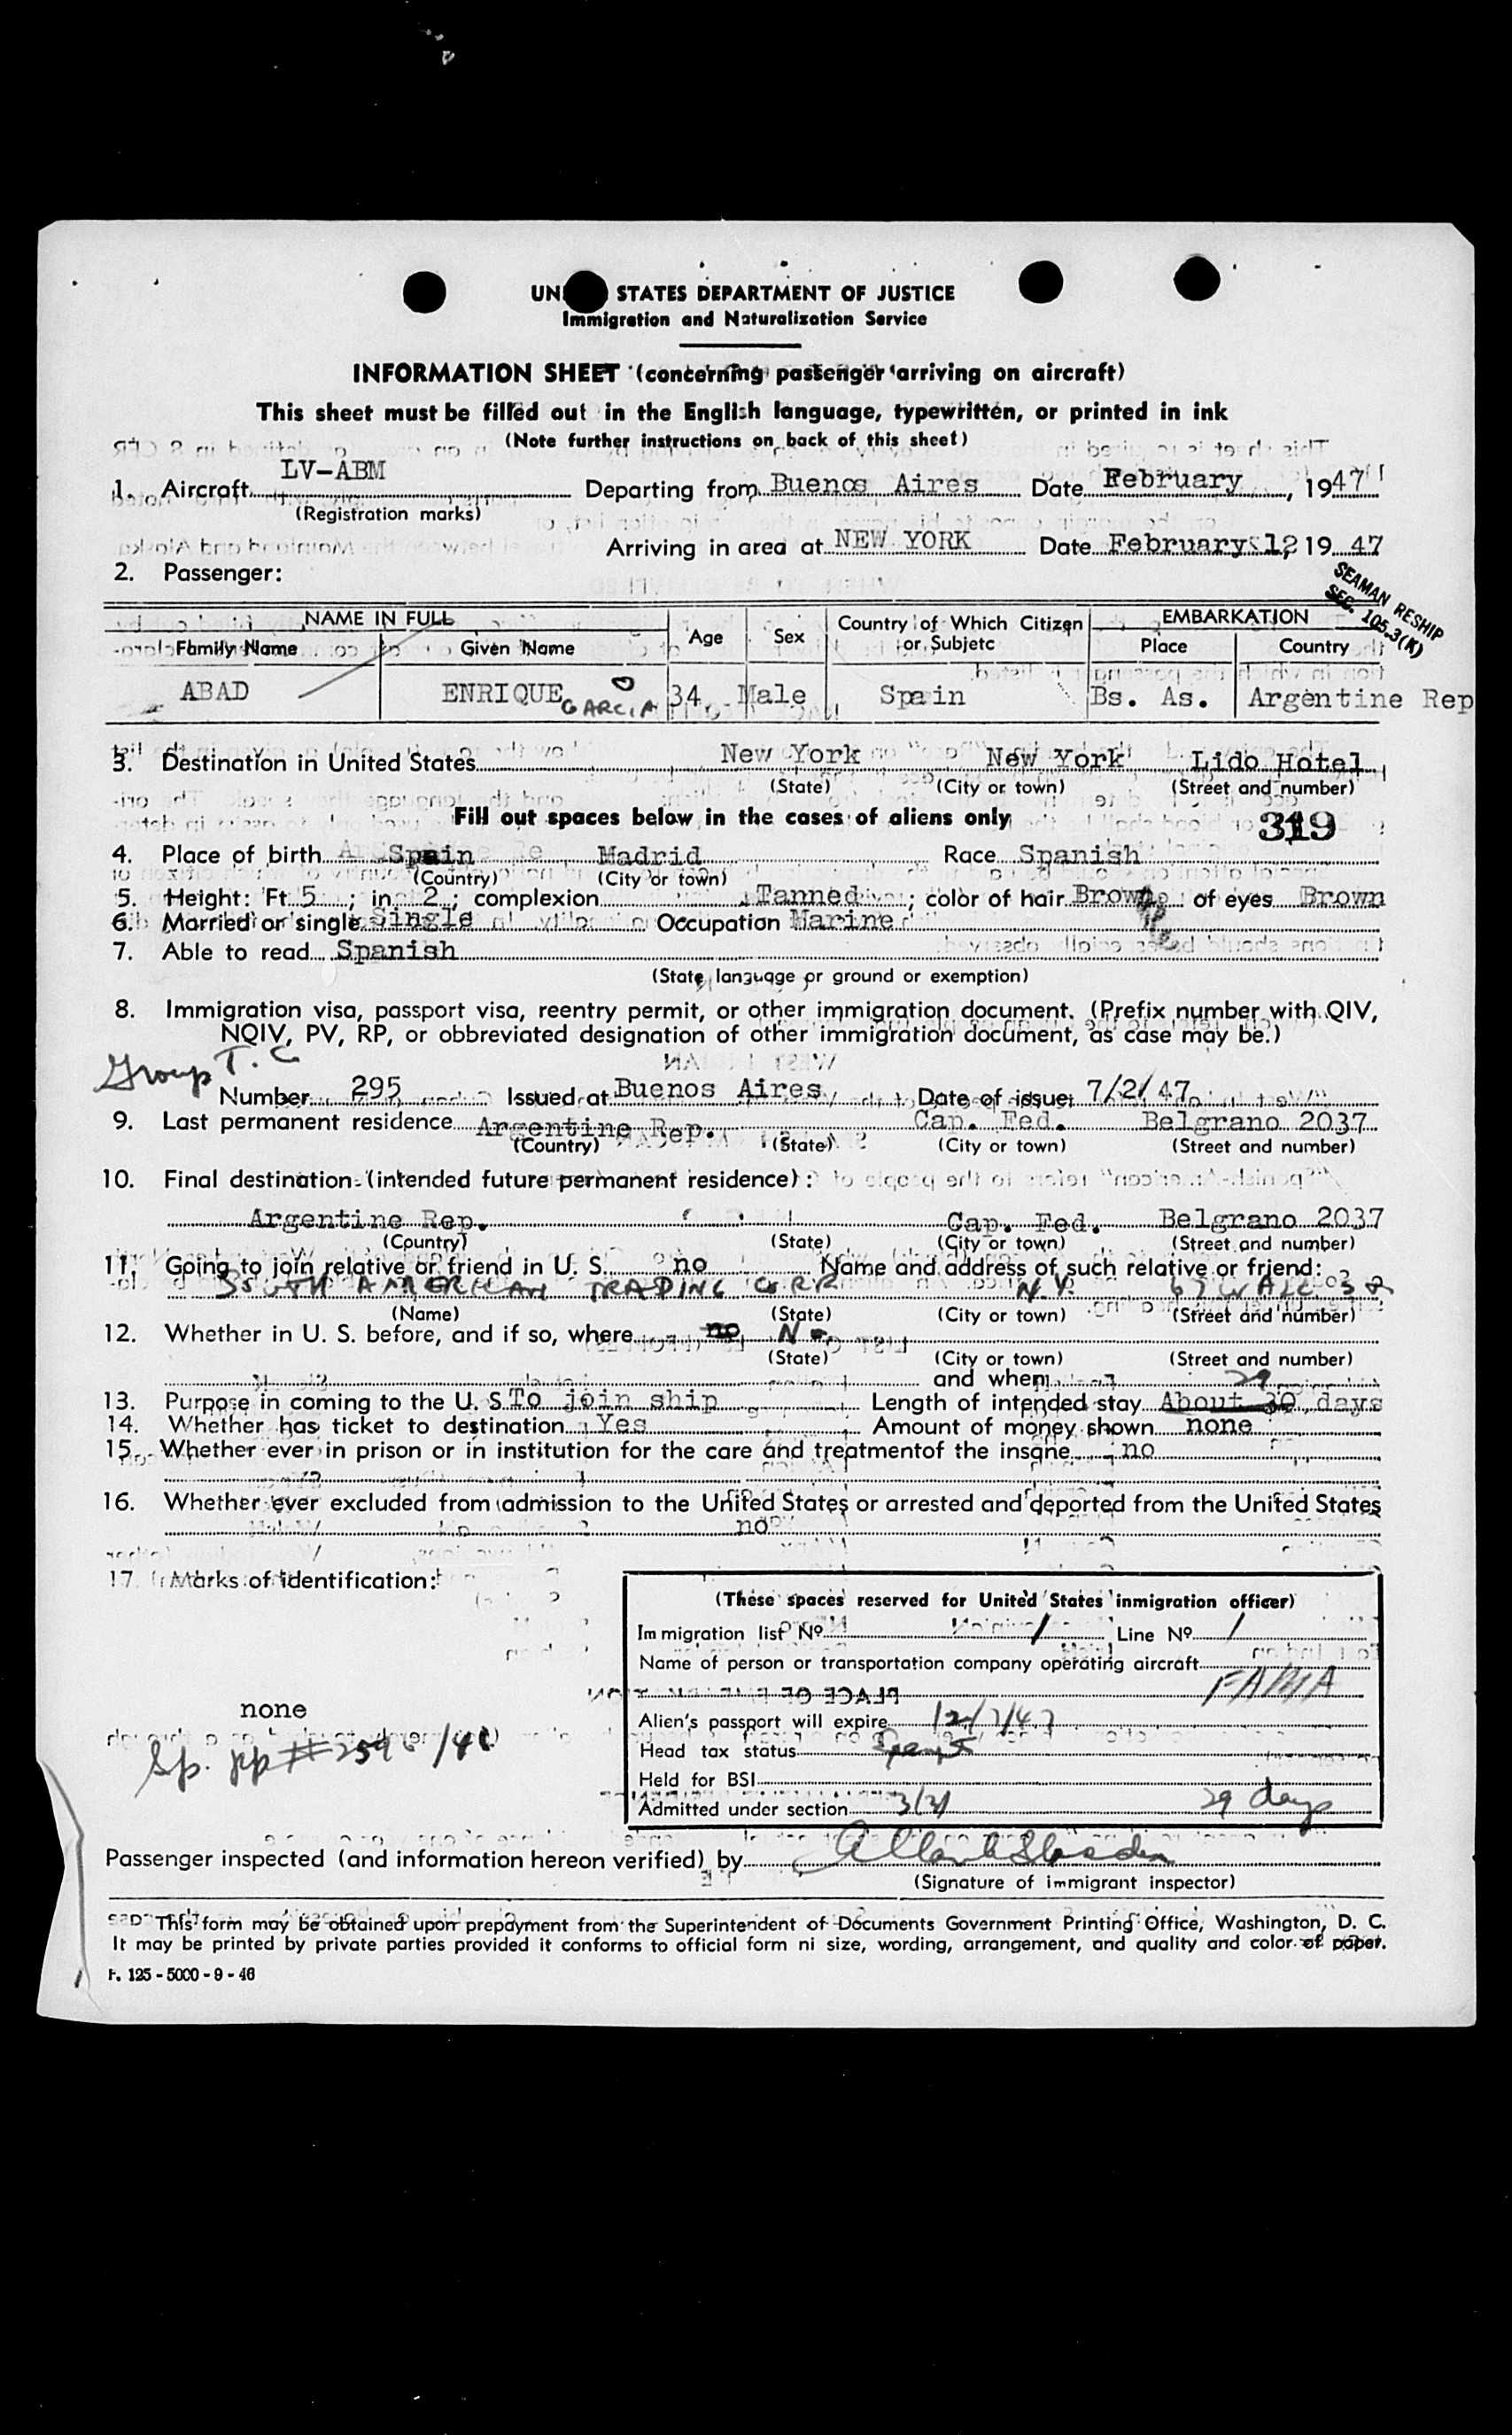 UN STATES DEPARTMENT OF JUSTICE
Immigration and Naturalization Service
INFORMATION SHEET (concerning passenger arriving on aircraft)
This sheet must be filled out in the English language, typewritten, or printed in ink
(Note further instructions on back of this sheet)
1. Aircraft LV-ABM Departing from Buenos Aires Date February, 1947
(Registration marks)
Arriving in area at NEW YORK Date February 12 19 47
2. Passenger:
SEAMAN RESHIP
SEC. 105.3(K)
NAME IN FULL Age Sex Country of Which Citizen or Subjetc EMBARKATION
Family Name Given Name Place Country
ABAD ENRIQUE GARCIA 34 Male Spain Bs. As. Argentine Rep
3. Destination in United States New York New York Lido Hotel
(State) (City or town) (Street and number)
Fill out spaces below in the cases of aliens only 319
4. Place of birth Spain Madrid Race Spanish
(Country) (City or town)
5. Height: Ft 5; in 2; complexion Tanned; color of hair Brown of eyes Brown
6. Married or single Single Occupation Marine
7. Able to read Spanish
(State language or ground or exemption)
8. Immigration visa, passport visa, reentry permit, or other immigration document. (Prefix number with QIV,
NQIV, PV, RP, or obbreviated designation of other immigration document, as case may be.)
Group T. C
Number 295 Issued at Buenos Aires Date of issue 7/2/47
9. Last permanent residence Argentine Rep. Cap. Fed. Belgrano 2037
(Country) (State) (City or town) (Street and number)
10. Final destination (intended future permanent residece):
Argentine Rep. Cap. Fed. Belgrano 2037
(Country) (State) (City or town) (Street and number)
11. Going to join relative or friend in U. S. no Name and address of such relative or friend:
SOUTH AMERICAN TRADING CORP N.Y. 67 WALL St
(Name) (State) (City or town) (Street and number)
12. Whether in U. S. before, and if so, where no No
(State) (City or town) (Street and number)
and when
29
13. Purpose in coming to the U. S To join ship Length of intended stay About 30 days
14. Whether has ticket to destination Yes Amount of money shown none
15. Whether ever in prison or in institution for the care and treatmentof the insane no
16. Whether ever excluded from admission to the United States or arrested and deported from the United States
no
17. Marks of identification:
none
(These spaces reserved for United States inmigration officer)
Immigration list Nº 1 Line Nº 1
Name of person or transportation company operating aircraft
FAMA
Alien's passport will expire 12/7/47
Head tax status Exempt
Held for BSI
Admitted under section 3(3) 29 days
Passenger inspected (and information hereon verified) by
(Signature of immigrant inspector)
This form may be obtained upon prepayment from the Superintendent of Documents Government Printing Office, Washington, D. C.
It may be printed by private parties provided it conforms to official form ni size, wording, arrangement, and quality and color of paper.
F. 125 - 5000 - 9 - 46